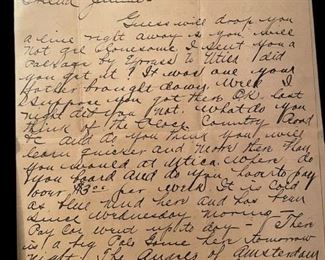 Friend Jennie
Guess will drop you
a line right away as you will
not get lonesome I sent you a
package by Express to Utica did
you get it? It was one your
Mother brought down. Well I
suppose you got here O.K. last
night did you not. What do you
think of the Cloak Country
&c And do you think you will
learn quicker and more there than
you would at Utica. Where do
you board and do you have to pay
your $3.00 per week. It is cold
as blue mud here and has been
since Wednesday Morning -
Pay Coy went up to day - There
is a big Polo Game here tomorrow
night. The Angels of Amsterdam